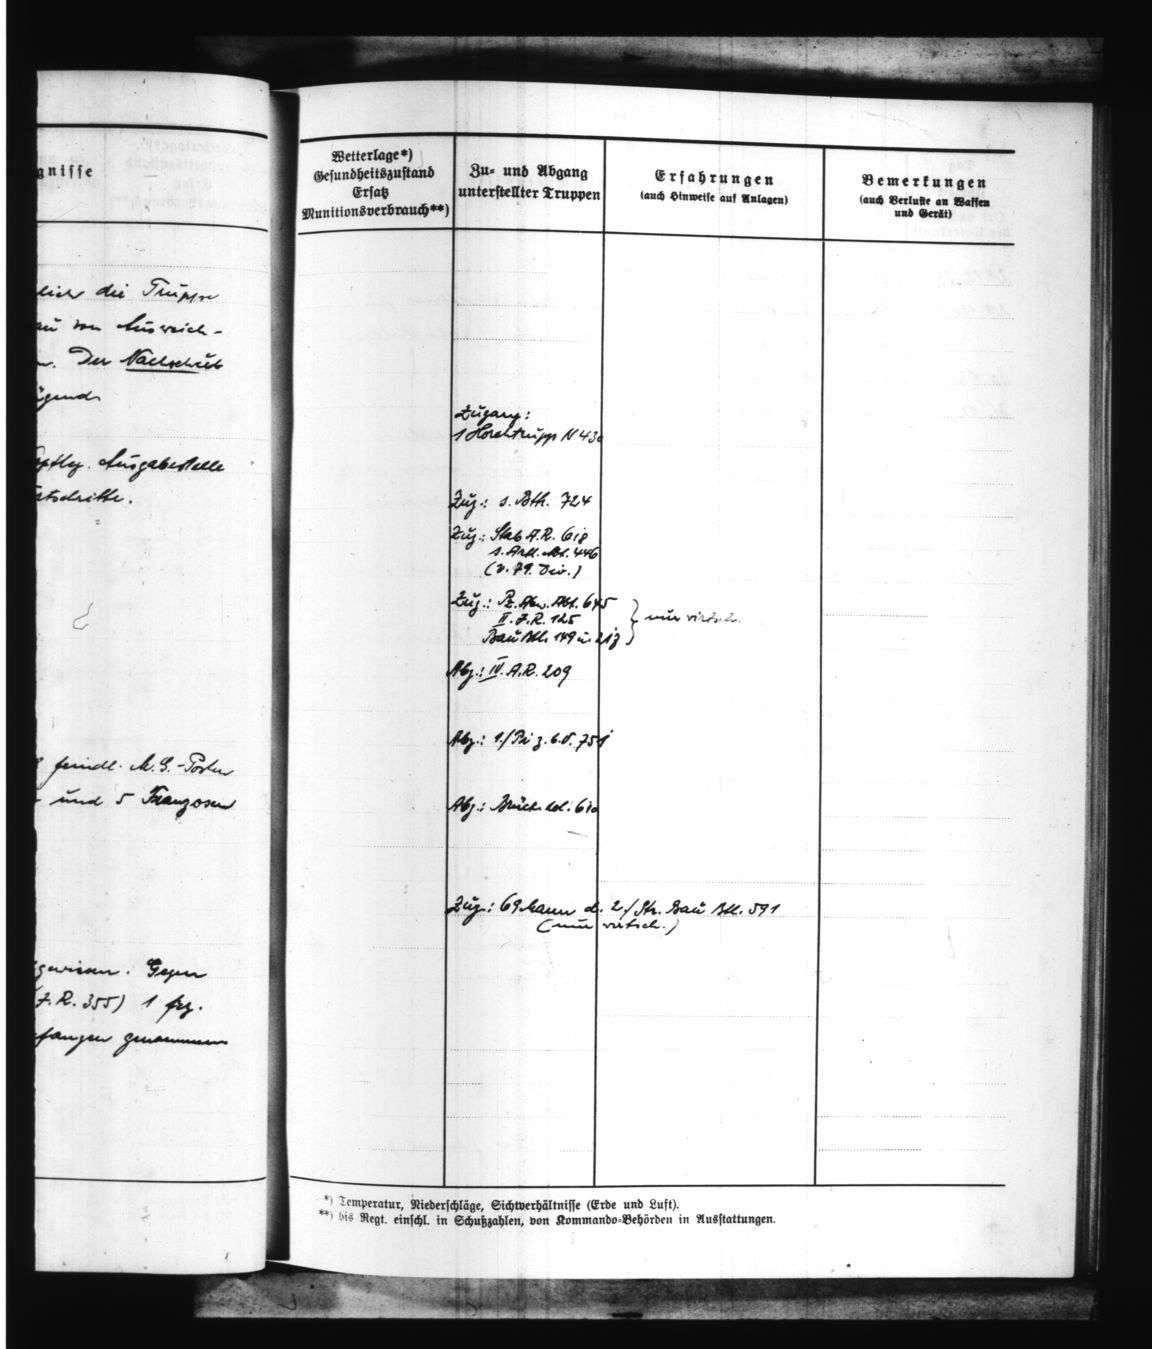 gnisse
lich die Truppe
au von Ausweich-
Der Nachschub
ügend
Ausgabestelle
feindl. M.G.-Posten
und 5 Franzosen
gewiesen. Gegen
J.R. 355) 1 frz.
fangen genommen
Wetterlage*)
Gesundheitszustand
Ersatz
Munitionsverbrauch**)
Zu- und Abgang
unterstellter Truppen
Erfahrungen
(auch Hinweise auf Anlagen)
Bemerkungen
(auch Verluste an Waffen
und Gerät)
Zugang:
1 Horchtrupp N 430
Zug.: s. Bttr. 724
Zug.: Stab A.R. 618
s. Art. Abt. 446
(v. 79. Div.)
Zug.: Pz. Abw. Abt. 645
II. J.R. 125 } nur wirtsch.
Bau Btl. 149 u. 217
Abg.: IV. A.R. 209
Abg.: 1./Pi z.b.V. 751
Abg.: Brück. 610
Zug.: 69 Mann d. 2./Str. Bau Btl. 591
(nur wirtsch.)
*) Temperatur, Niederschläge, Sichtverhältnisse (Erde und Luft).
**) bis Regt. einschl. in Schußzahlen, von Kommando-Behörden in Ausstattungen.